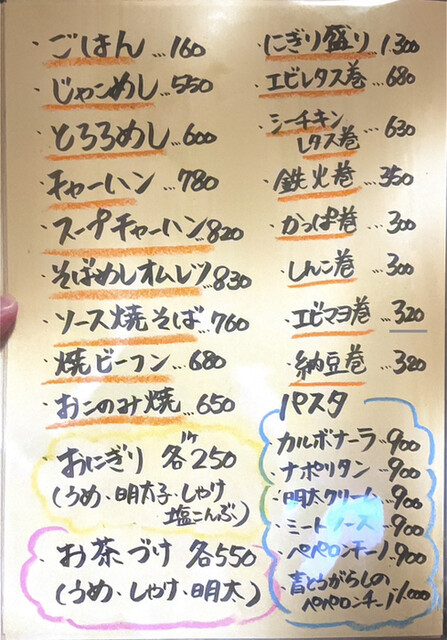 ・ごはん…160
・じゃこめし…550
・とろろめし…600
・チャーハン…780
・スープチャーハン…820
・そばめしオムレツ…830
・ソース焼そば…760
・焼ビーフン…680
・おこのみ焼…650
・おにぎり 各1ケ250
(うめ・明太子・しゃけ
塩こんぶ)
・お茶づけ 各550
(うめ・しゃけ・明太)
・にぎり盛り…1,300
・エビレタス巻…680
・シーチキン
レタス巻…630
・鉄火巻…350
・かっぱ巻…300
・しんこ巻…300
・エビマヨ巻…320
・納豆巻…320
パスタ
・カルボナーラ…900
・ナポリタン…900
・明太クリーム…900
・ミートソース…900
・ペペロンチーノ…900
・青とうがらしの
ペペロンチーノ1,000